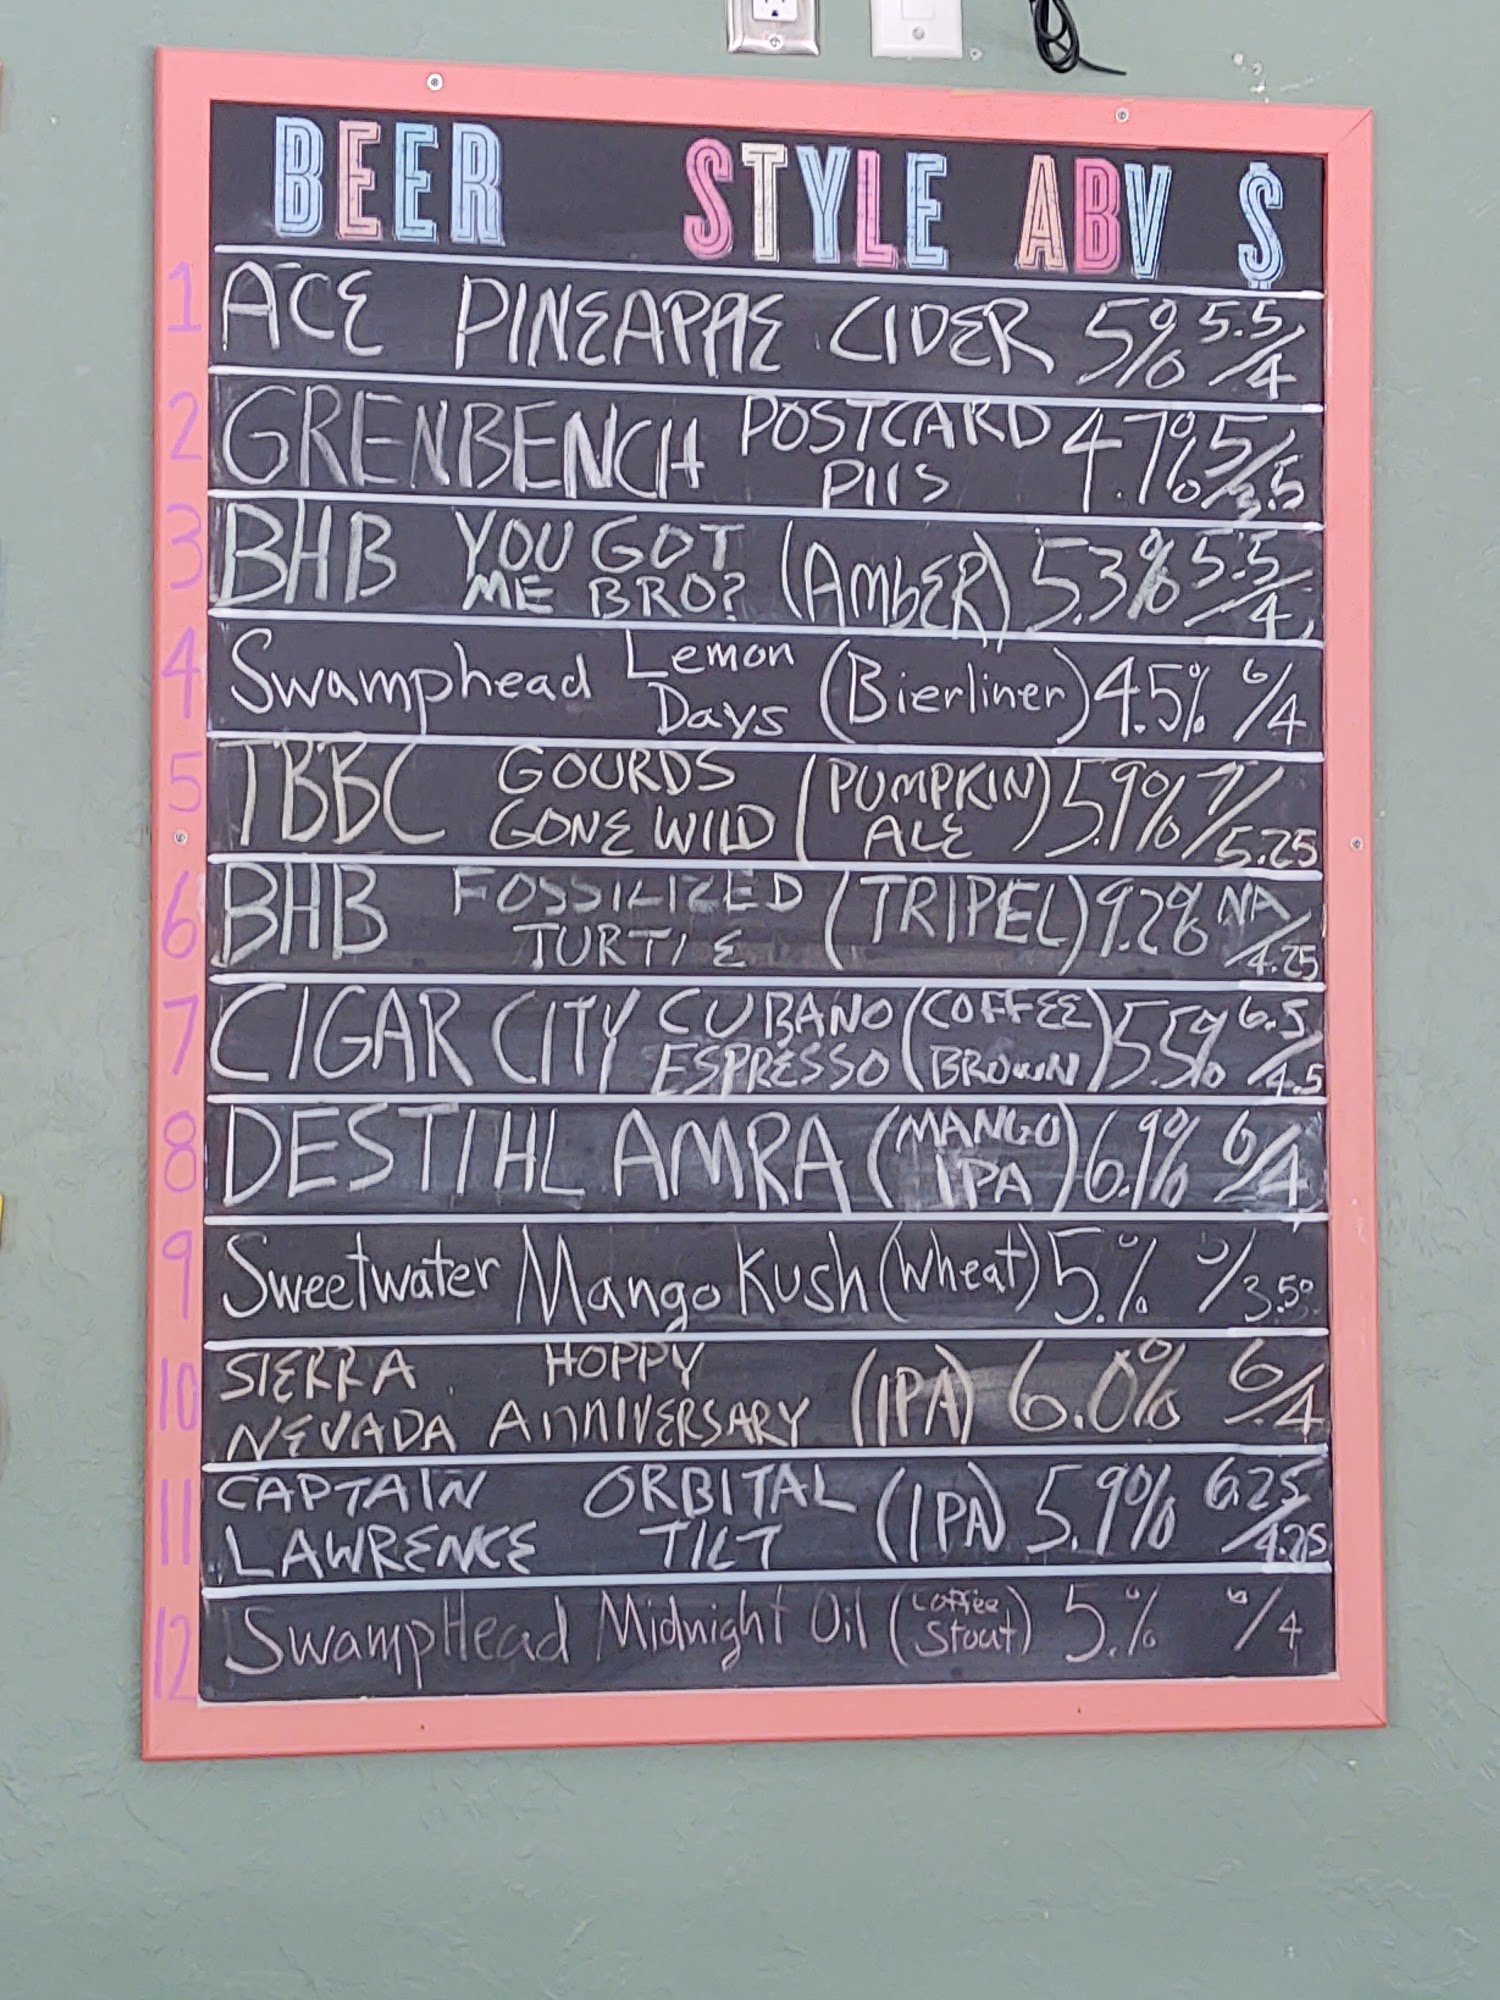 BEER STYLE ABV $
1 ACE PINEAPPLE CIDER 5% 5.5/4
2 GRENBENCH POSTCARD PILS 4.7% 5/3.5
3 BHB YOU GOT ME BRO? (AMBER) 5.3% 5.5/4
4 Swamphead Lemon Days (Bierliner) 4.5% 6/4
5 TBBC GOURDS GONE WILD (PUMPKIN ALE) 5.9% 7/5.25
6 BHB FOSSILIZED TURTLE (TRIPEL) 9.2% NA/4.25
7 CIGAR CITY CUBANO ESPRESSO (COFFEE BROWN) 5.5% 6.5/4.5
8 DESTIHL AMRA (MANGO IPA) 6.1% 6/4
9 Sweetwater Mango Kush (Wheat) 5.% 5/3.50
10 SIERRA NEVADA HOPPY ANNIVERSARY (IPA) 6.0% 6/4
11 CAPTAIN LAWRENCE ORBITAL TILT (IPA) 5.9% 6.25/4.25
12 SwampHead Midnight Oil (Coffee Stout) 5.% 6/4